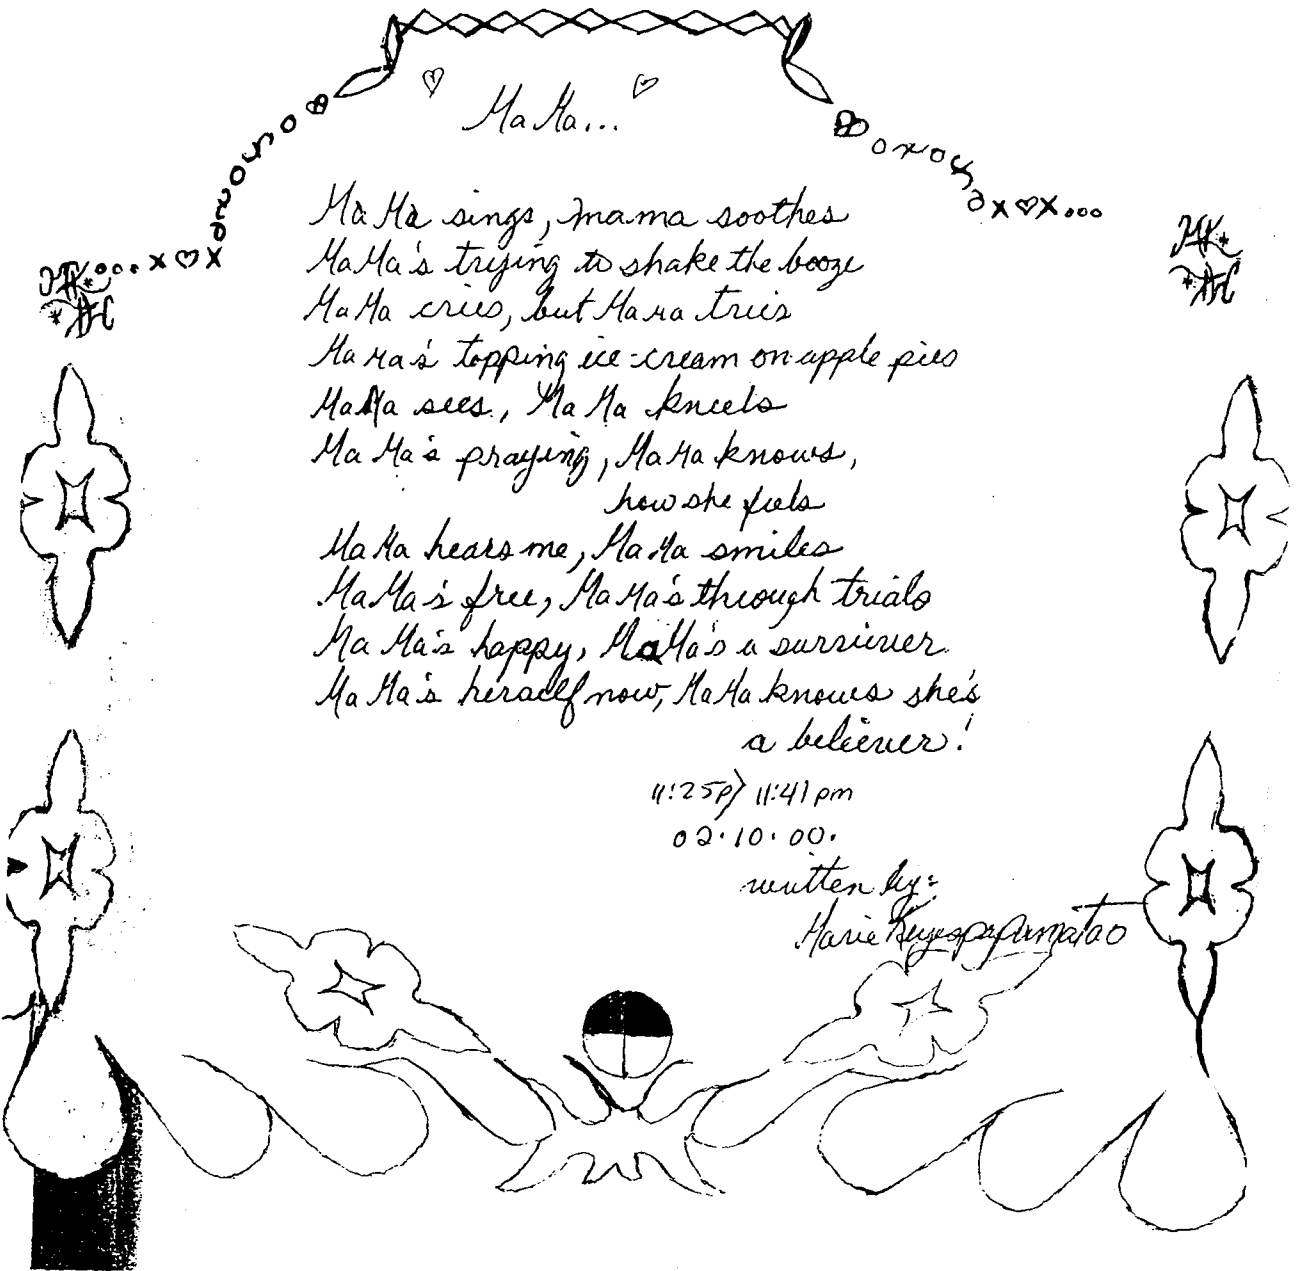 MaMa...
MaMa sings, mama soothes
MaMa's trying to shake the booze
MaMa cries, but MaMa tries
MaMa's topping ice-cream on apple pies
MaMa sees, MaMa kneels
MaMa's praying, MaMa knows,
how she feels
MaMa hears me, MaMa smiles
MaMa's free, MaMa's through trials
MaMa's happy, MaMa's a surviver.
MaMa's herself now, MaMa knows she's
a believer!
11:25p) 11:41pm
02.10.00.
written by:
Marie